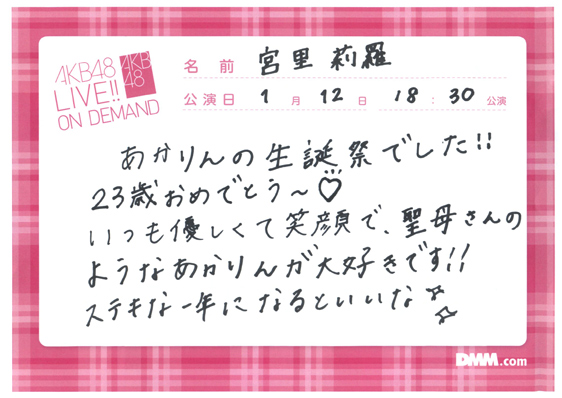 AKB48
LIVE!!
ON DEMAND
AKB
48
名前 宮里 莉羅
公演日 1月 12日 18:30公演
あかりんの生誕祭でした!!
23歳おめでとう〜♡
いつも優しくて笑顔で、聖母さんの
ようなあかりんが大好きです!!
ステキな一年になるといいな☆☆
DMM.com